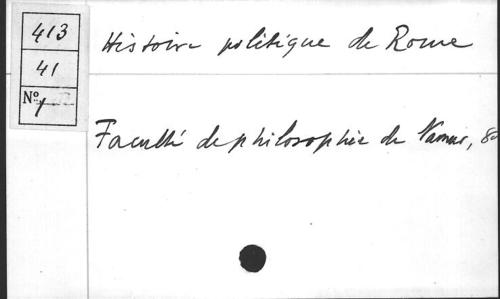 413
41
No 1
Histoire politique de Rome
Faculté de philosophie de Namur, 80